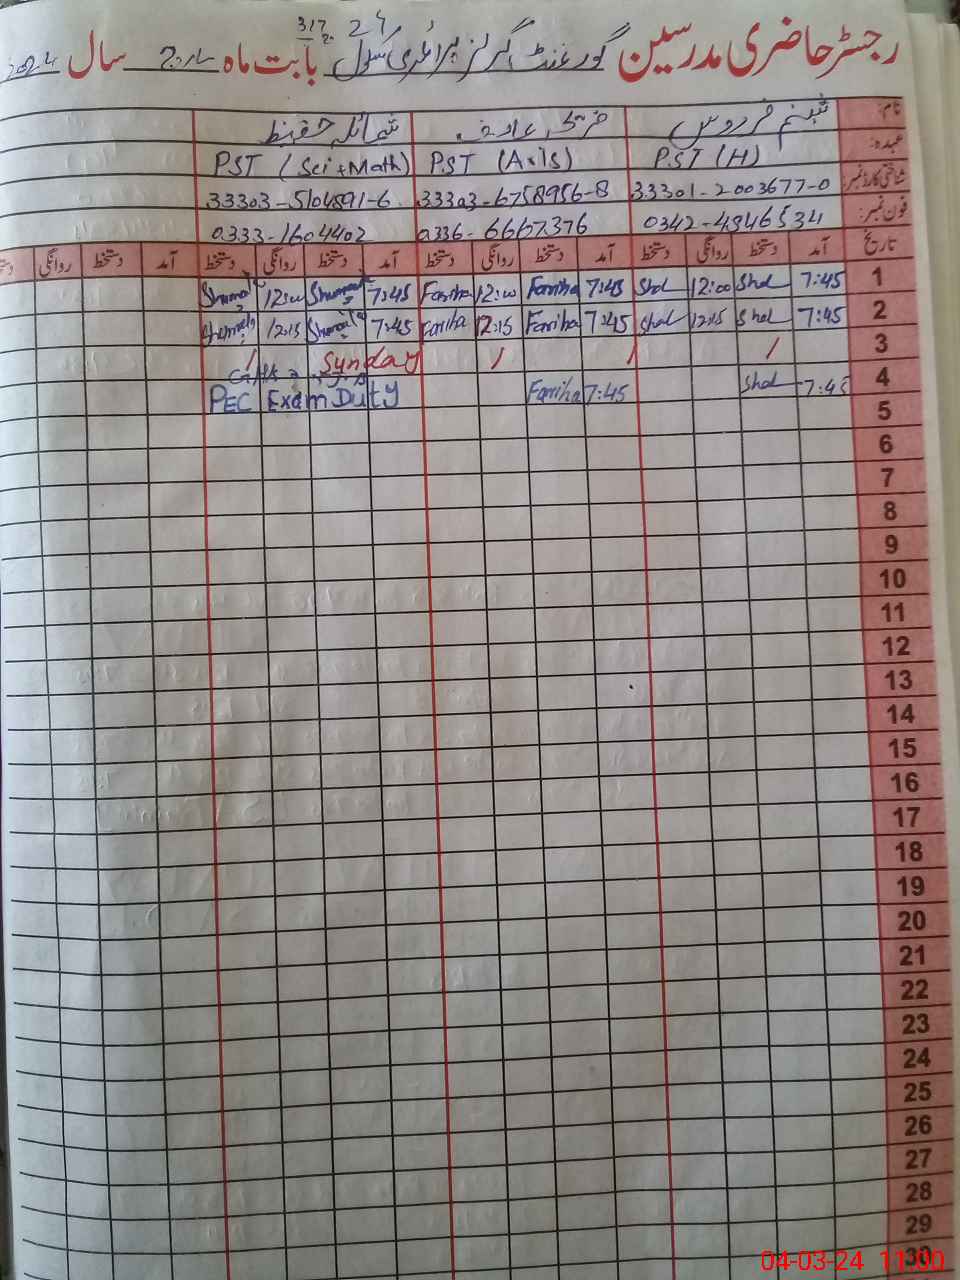 رجسٹر حاضری مدرسین گورنمنٹ گرلز پرائمری سکول 317 ج ب بابت ماہ مارچ سال 2024
نام: شبنم فردوس فریحہ عارف شمائلہ حفیظ
عہدہ: PST (H) PST (Arts) PST (Sci+Math)
شناختی کارڈ نمبر: 33301-2003677-0 33303-6758956-8 33303-5104891-6
فون نمبر: 0342-4346534 0336-6667376 0333-1604402
تاریخ آمد دستخط روانگی دستخط آمد دستخط روانگی دستخط آمد دستخط روانگی دستخط آمد دستخط روانگی دستخط
1 7:45 Shd 12:00 Shd 7:45 Fariha 12:00 Fariha 7:45 12:00
2 7:45 Shd 12:15 Shd 7:45 Fariha 12:15 Fariha 7:45 12:15
3 Sunday
4 7:45 Shd 7:45 Fariha PEC Exam Duty
5
6
7
8
9
10
11
12
13
14
15
16
17
18
19
20
21
22
23
24
25
26
27
28
29
30
04-03-24 11:00